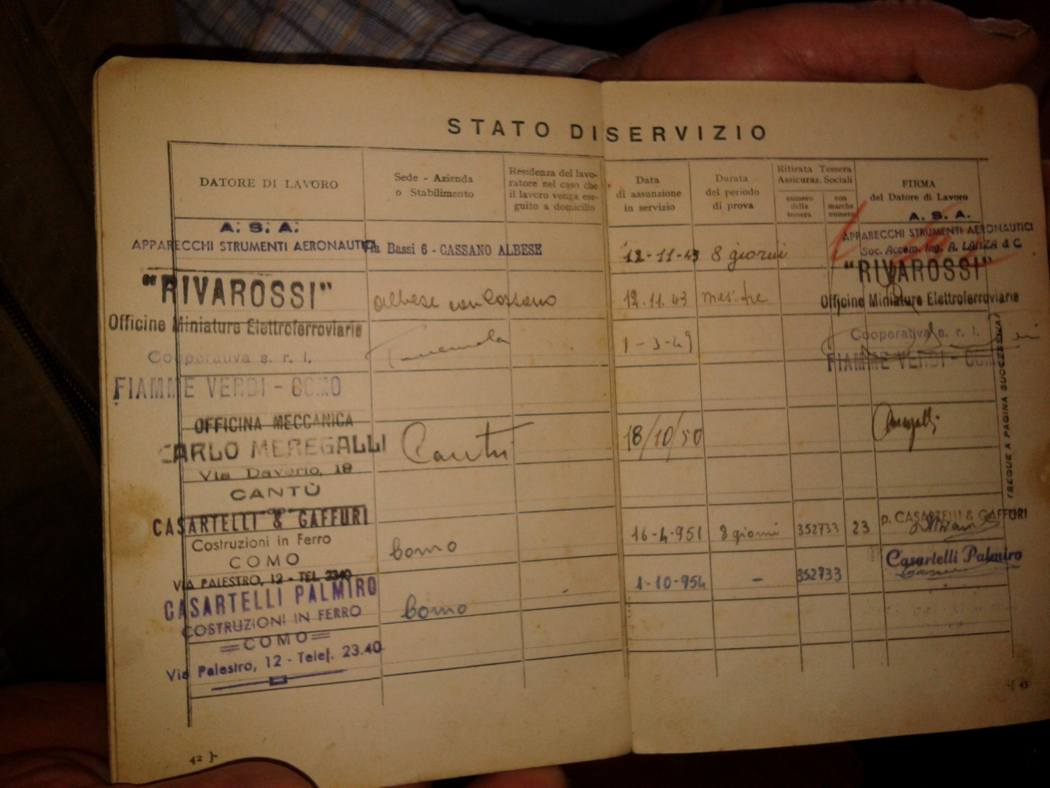 STATO DI SERVIZIO
DATORE DI LAVORO
Sede - Azienda
o Stabilimento
Residenza del lavo-
ratore nel caso che
il lavoro venga ese-
guito a domicilio
Data
di assunzione
in servizio
Durata
del periodo
di prova
Ritirata Tessera
Assicuraz. Sociali
numero
della
tessera
con
marche
numero
FIRMA
del Datore di Lavoro
A. S. A.
APPARECCHI STRUMENTI AERONAUTICI
Via Bassi 6 - CASSANO ALBESE
12-11-43 8 giorni
A. S. A.
APPARECCHI STRUMENTI AERONAUTICI
Soc. Accom. Ing. A. LANZA & C
"RIVAROSSI"
Officine Miniature Elettroferroviarie
albese con Cassano
12.11.43
"RIVAROSSI"
Officine Miniature Elettroferroviarie
Cooperativa s. r. l.
FIAMME VERDI - COMO
1-3-49
Cooperativa s. r. l.
FIAMME VERDI - COMO
OFFICINA MECCANICA
CARLO MEREGALLI
Via Daverio, 18
CANTÙ
Cantù
18/10/50
CASARTELLI & GAFFURI
Costruzioni in Ferro
COMO
VIA PALESTRO, 12 - TEL. 2340
Como
16-4-951 8 giorni 352733 23
p. CASARTELLI & GAFFURI
CASARTELLI PALMIRO
COSTRUZIONI IN FERRO
COMO
Via Palestro, 12 - Telef. 23.40
Como
1-10-954 - 352733
Casartelli Palmiro
(SEGUE A PAGINA SUCCESSIVA)
42
43